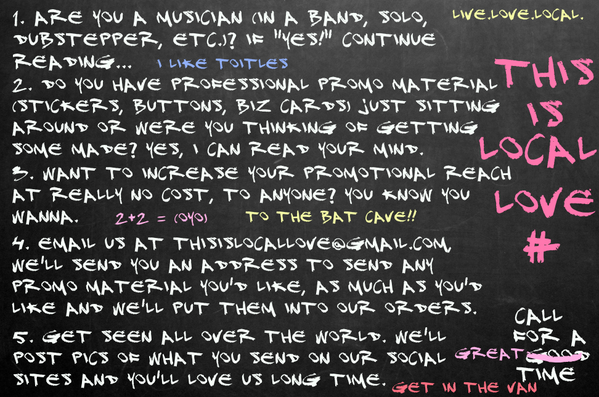 1. ARE YOU A MUSICIAN (IN A BAND, SOLO,
DUBSTEPPER, ETC.)? IF "YES!" CONTINUE
READING...
I LIKE TOITLES
2. DO YOU HAVE PROFESSIONAL PROMO MATERIAL
(STICKERS, BUTTONS, BIZ CARDS) JUST SITTING
AROUND OR WERE YOU THINKING OF GETTING
SOME MADE? YES, I CAN READ YOUR MIND.
3. WANT TO INCREASE YOUR PROMOTIONAL REACH
AT REALLY NO COST, TO ANYONE? YOU KNOW YOU
WANNA.
2+2 = (OYO)
TO THE BAT CAVE!!
4. EMAIL US AT THISISLOCALLOVE@GMAIL.COM,
WE'LL SEND YOU AN ADDRESS TO SEND ANY
PROMO MATERIAL YOU'D LIKE, AS MUCH AS YOU'D
LIKE AND WE'LL PUT THEM INTO OUR ORDERS.
5. GET SEEN ALL OVER THE WORLD. WE'LL
POST PICS OF WHAT YOU SEND ON OUR SOCIAL
SITES AND YOU'LL LOVE US LONG TIME.
LIVE.LOVE.LOCAL.
THIS
IS
LOCAL
LOVE
#
CALL
FOR A
GREAT GOOD
TIME
GET IN THE VAN